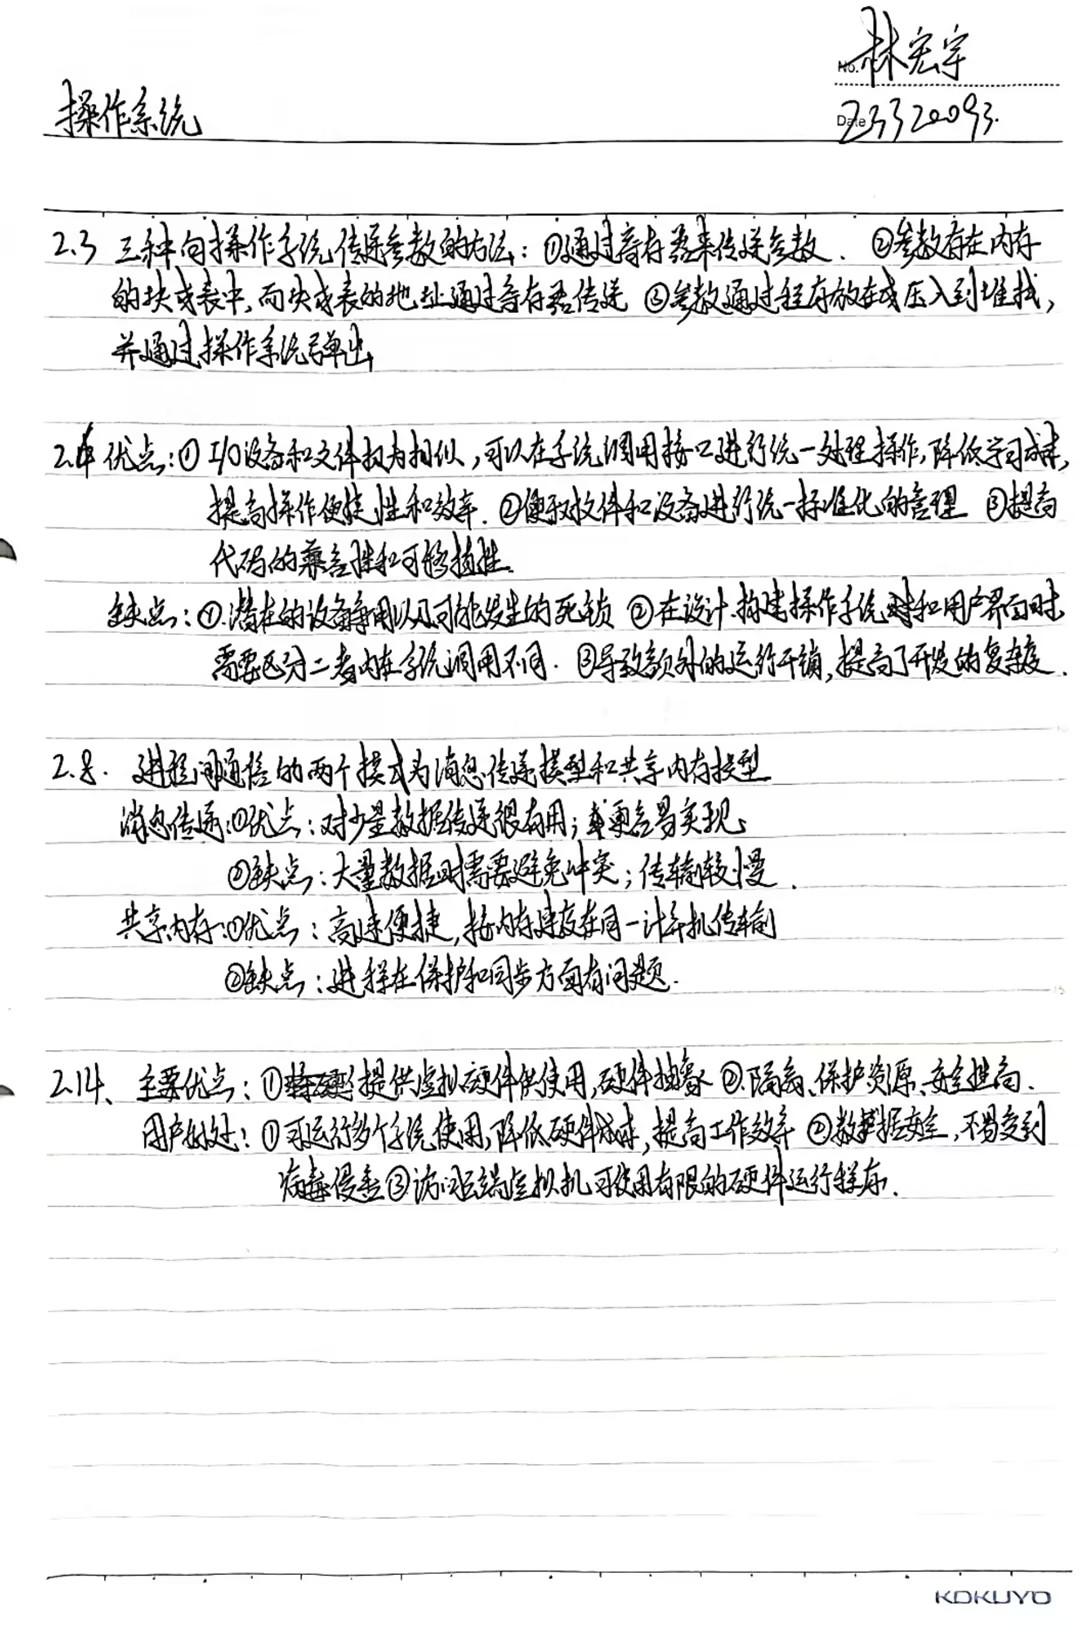 No. 林宏宇
操作系统
Date 23320093.
2.3 三种向操作系统传递参数的方法：①通过寄存器来传递参数． ②参数存在内存
的块或表中，而块或表的地址通过寄存器传递 ③参数通过程序放在或压入到堆栈，
并通过操作系统弹出
2.6 优点：① I/O设备和文件极为相似，可以在系统调用接口进行统一处理操作，降低学习成本，
提高操作便捷性和效率．②便于对文件和设备进行统一标准化的管理 ③提高
代码的兼容性和可移植性．
缺点：①．潜在的设备争用以及可能发生的死锁 ②在设计构建操作系统时和用户界面时
需要区分二者内在系统调用不同．③导致额外的运行开销，提高了开发的复杂度．
2.8． 进程间通信的两个模式为消息传递模型和共享内存模型
消息传递：①优点：对少量数据传递很有用；更容易实现
②缺点：大量数据时需要避免冲突；传输较慢．
共享内存：①优点：高速便捷，按内存速度在同一计算机传输
②缺点：进程在保护和同步方面有问题．
2.14、主要优点：①提供虚拟硬件供使用，硬件抽象 ②．隔离、保护资源、安全性高．
用户好处：①可运行多个系统使用，降低硬件成本，提高工作效率 ②数据安全，不易受到
病毒侵害 ③访问远端虚拟机可使用有限的硬件运行程序．
KOKUYO